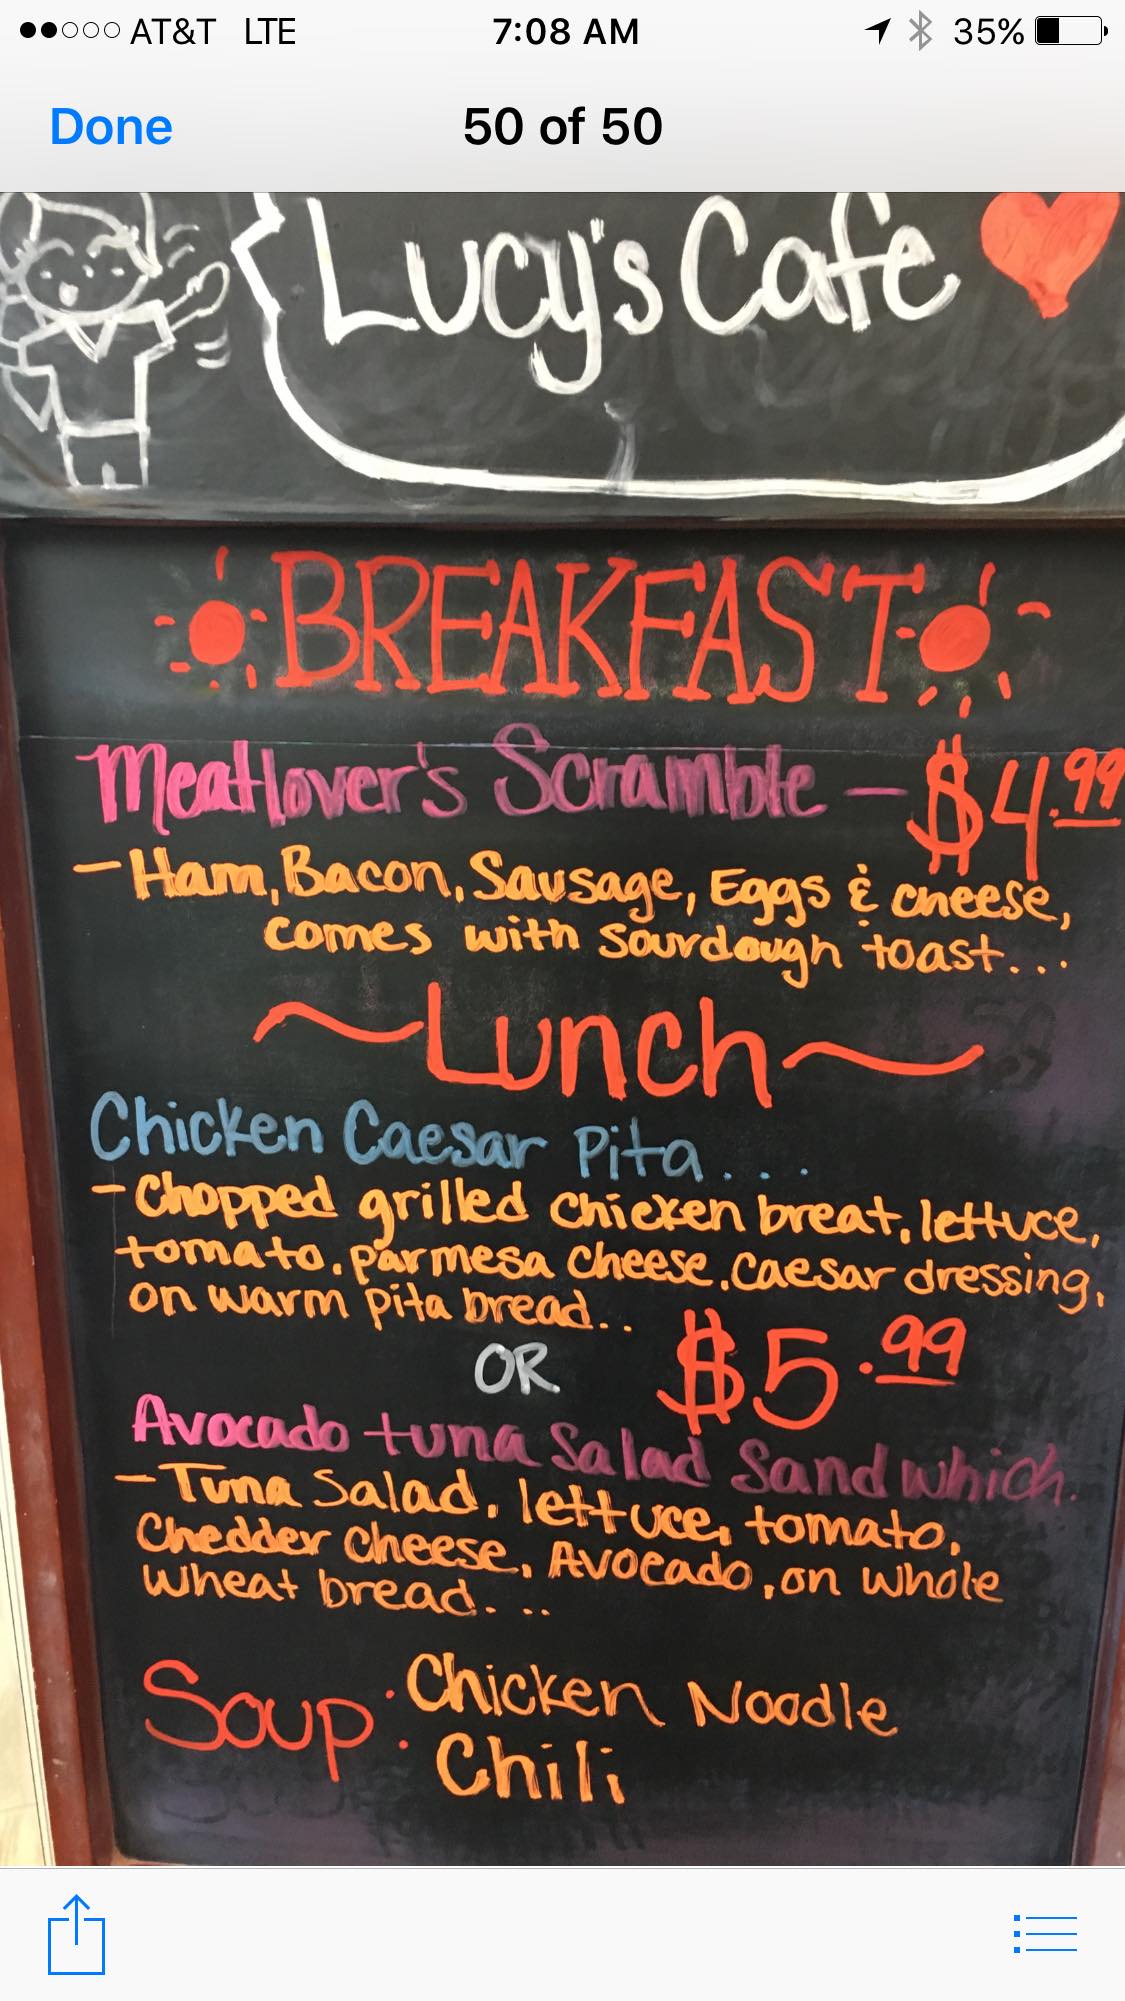 AT&T LTE 7:08 AM 35%
Done 50 of 50
Lucy's Cafe
BREAKFAST
Meatlover's Scramble - $4.99
- Ham, Bacon, Sausage, Eggs & cheese,
comes with sourdough toast...
~Lunch~
Chicken Caesar Pita...
- Chopped grilled chicken breat, lettuce,
tomato, parmesa cheese, caesar dressing,
on warm pita bread..
OR $5.99
Avocado tuna Salad Sandwhich.
- Tuna Salad, lettuce, tomato,
Chedder cheese, Avocado, on whole
wheat bread...
Soup: Chicken Noodle
Chili